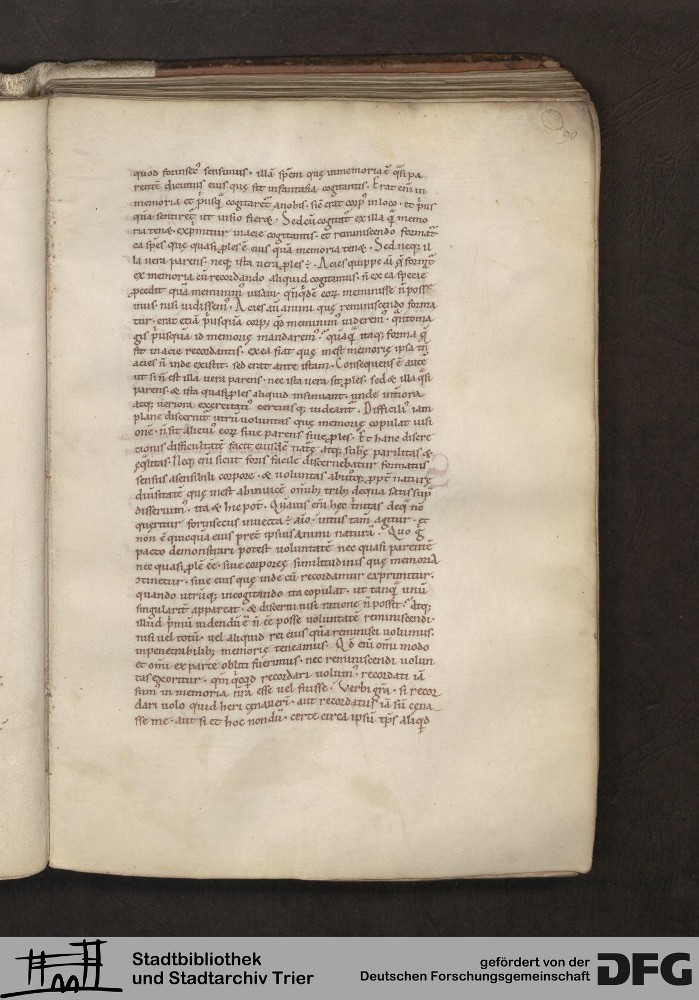 90
quod forinsec᷒ sensimus · illā spēm quę in memoria ē q̄si pa
rentē dicimus eius quę fit in fantasia cogitantis · Erat enī in
memoria et p̄usq̄ cogitaret᷑ a nobis · sic̄ erat corp᷒ in loco · et p̄us
quā sentiret᷑ ut uisio fieret · Sed cū cogitat᷑ ex illa q̄ memo
ria tenet᷑ · exprimitur in acie cogitantis · et reminiscendo formatur
ea spēs quę quasi ꝓles ē eius quā memoria tenet · Sed neq; il
la uera parens · neq; ista uera ꝓles ÷ · Acies quippe
ex memoria cū recordando aliquid cogitamus · n̄ ex ea specie
ꝓcedit quā meminim᷒ uisam · eorꝝ meminisse n̄ poss
mus · nisi uidissem᷒ · Acies aū animi quę reminiscendo forma
tur · erat etiā p̄usquā corp᷒ qd̄ meminim᷒ uiderem᷒ · q̄ntoma
gis p̄usquā id memorię mandarem᷒ · quāquā itaq; forma q̄
fit in acie recordantis · ex ea fiat quę inest memorię ipsa tn̄
acies n̄ inde existit · sed erat ante istam · Consequens ē autē
ut si n̄ est illa uera parens · nec ista uera sit ꝓles · sed & illa q̄si
parens · & ista quasi ꝓles aliquid insinuant · unde interiora
atq; ueriora exercitati᷒ certiusq; uideant᷑ · Difficili᷒ iam
plane discernit᷑ utrū uoluntas quę memorię copulat uisi
onē · n̄ sit alicui᷒ eorꝝ siue parens siue ꝓles · Et hanc discre
tionis difficultatē facit eiusdē naturę atq; substantię parilitas &
ęq̄litas · Neq; enī sicut foris facile discernebatur formatus
sensus a sensibili corpore · & uoluntas ab utroq; ꝓpt᷑ naturę
diuersitatē quę inest ab inuicē omib; trib; de qua satis sup᷑
disseruim᷒ · ita & hic pot᷑ · Quāuis enī hęc trinitas de q̄ nc̄
queritur forinsecus inuecta ÷ aīo · intus tam᷑ agitur · et
non ē quicquā eius pręter ipsius animi naturā · Quo g᷑
pacto demonstrari potest uoluntatē nec quasi parentē
nec quasi ꝓlē eē · siue corporeę similitudinis quę memoria
ↄtinetur · siue eius quę inde cū recordamur exprimitur ·
quando utrūq; in cogitando ita copulat · ut tanq̄ unū
singularit᷑ appareat · & discerni nisi ratione n̄ possit · Atq;
illud p̄mū uidendū ē n̄ eē posse uoluntatē reminiscendi ·
nisi uel totū · uel aliquid rei eius quā reminisci uolumus ·
in penetralibus memorię teneamus · Qd̄ enī omi modo
et omi ex parte obliti fuerimus · nec reminiscendi uolun
tas exoritur · qm̄ q̄cqd̄ recordari uolum᷒ · recordati iā
sum᷒ in memoria nr̄a esse uel fuisse · Verbi gr̄a · si recor
dari uolo quid heri cęnauerī · aut recordatus iā sū cęna
sse me · aut si et hoc nondū · certe circa ipsū tp̄s aliqd̄
Stadtbibliothek
und Stadtarchiv Trier
gefördert von der
Deutschen Forschungsgemeinschaft
DFG